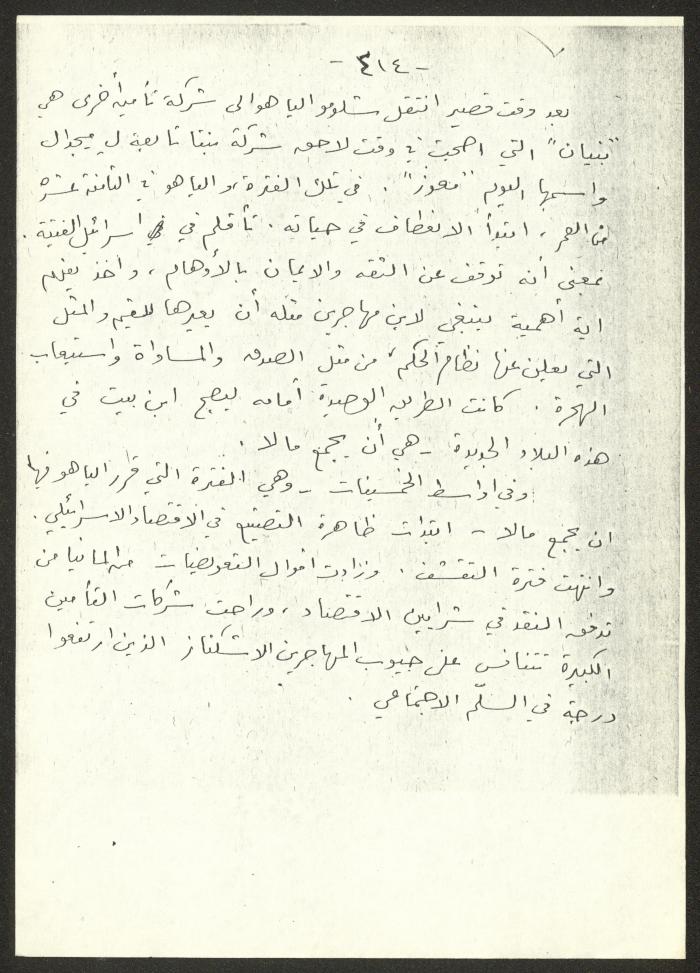 - ٣١٤ -
بعد وقت قصير انتقل شلومو الياهو الى شركة تأمين أخرى هي
"بنيان" التي اصبحت في وقت لاحق شركة بنتا تابعة ل ميجدال
واسمها اليوم "معوز". في تلك الفترة، والياهو في الثامنة عشرة
من العمر، ابتدأ الانعطاف في حياته. تأقلم في اسرائيل الفتية.
بمعنى أنه توقف عن الثقه والايمان بالأوهام، واخذ يفهم
اية أهمية ينبغي لابن مهاجرين مثله أن يعيرها للقيم والمثل
التي يعلن عنها نظام الحكم، من مثل الصدق والمساواة واستيعاب
الهجرة. كانت الطريق الوحيدة أمامه ليصبح ابن بيت في
هذه البلاد الجديدة - هي أن يجمع مالا.
وفي اواسط الخمسينات - وهي الفترة التي قرر الياهو فيها
ان يجمع مالا - ابتدات ظاهرة التصنيع في الاقتصاد الاسرائيلي.
وانتهت فترة التقشف. وزادت اموال التعويضات من المانيا من
تدفق النقد في شرايين الاقتصاد، وراحت شركات التأمين
الكبيرة تتنافس على جيوب المهاجرين الاشكناز الذين ارتفعوا
درجة في السلّم الاجتماعي.